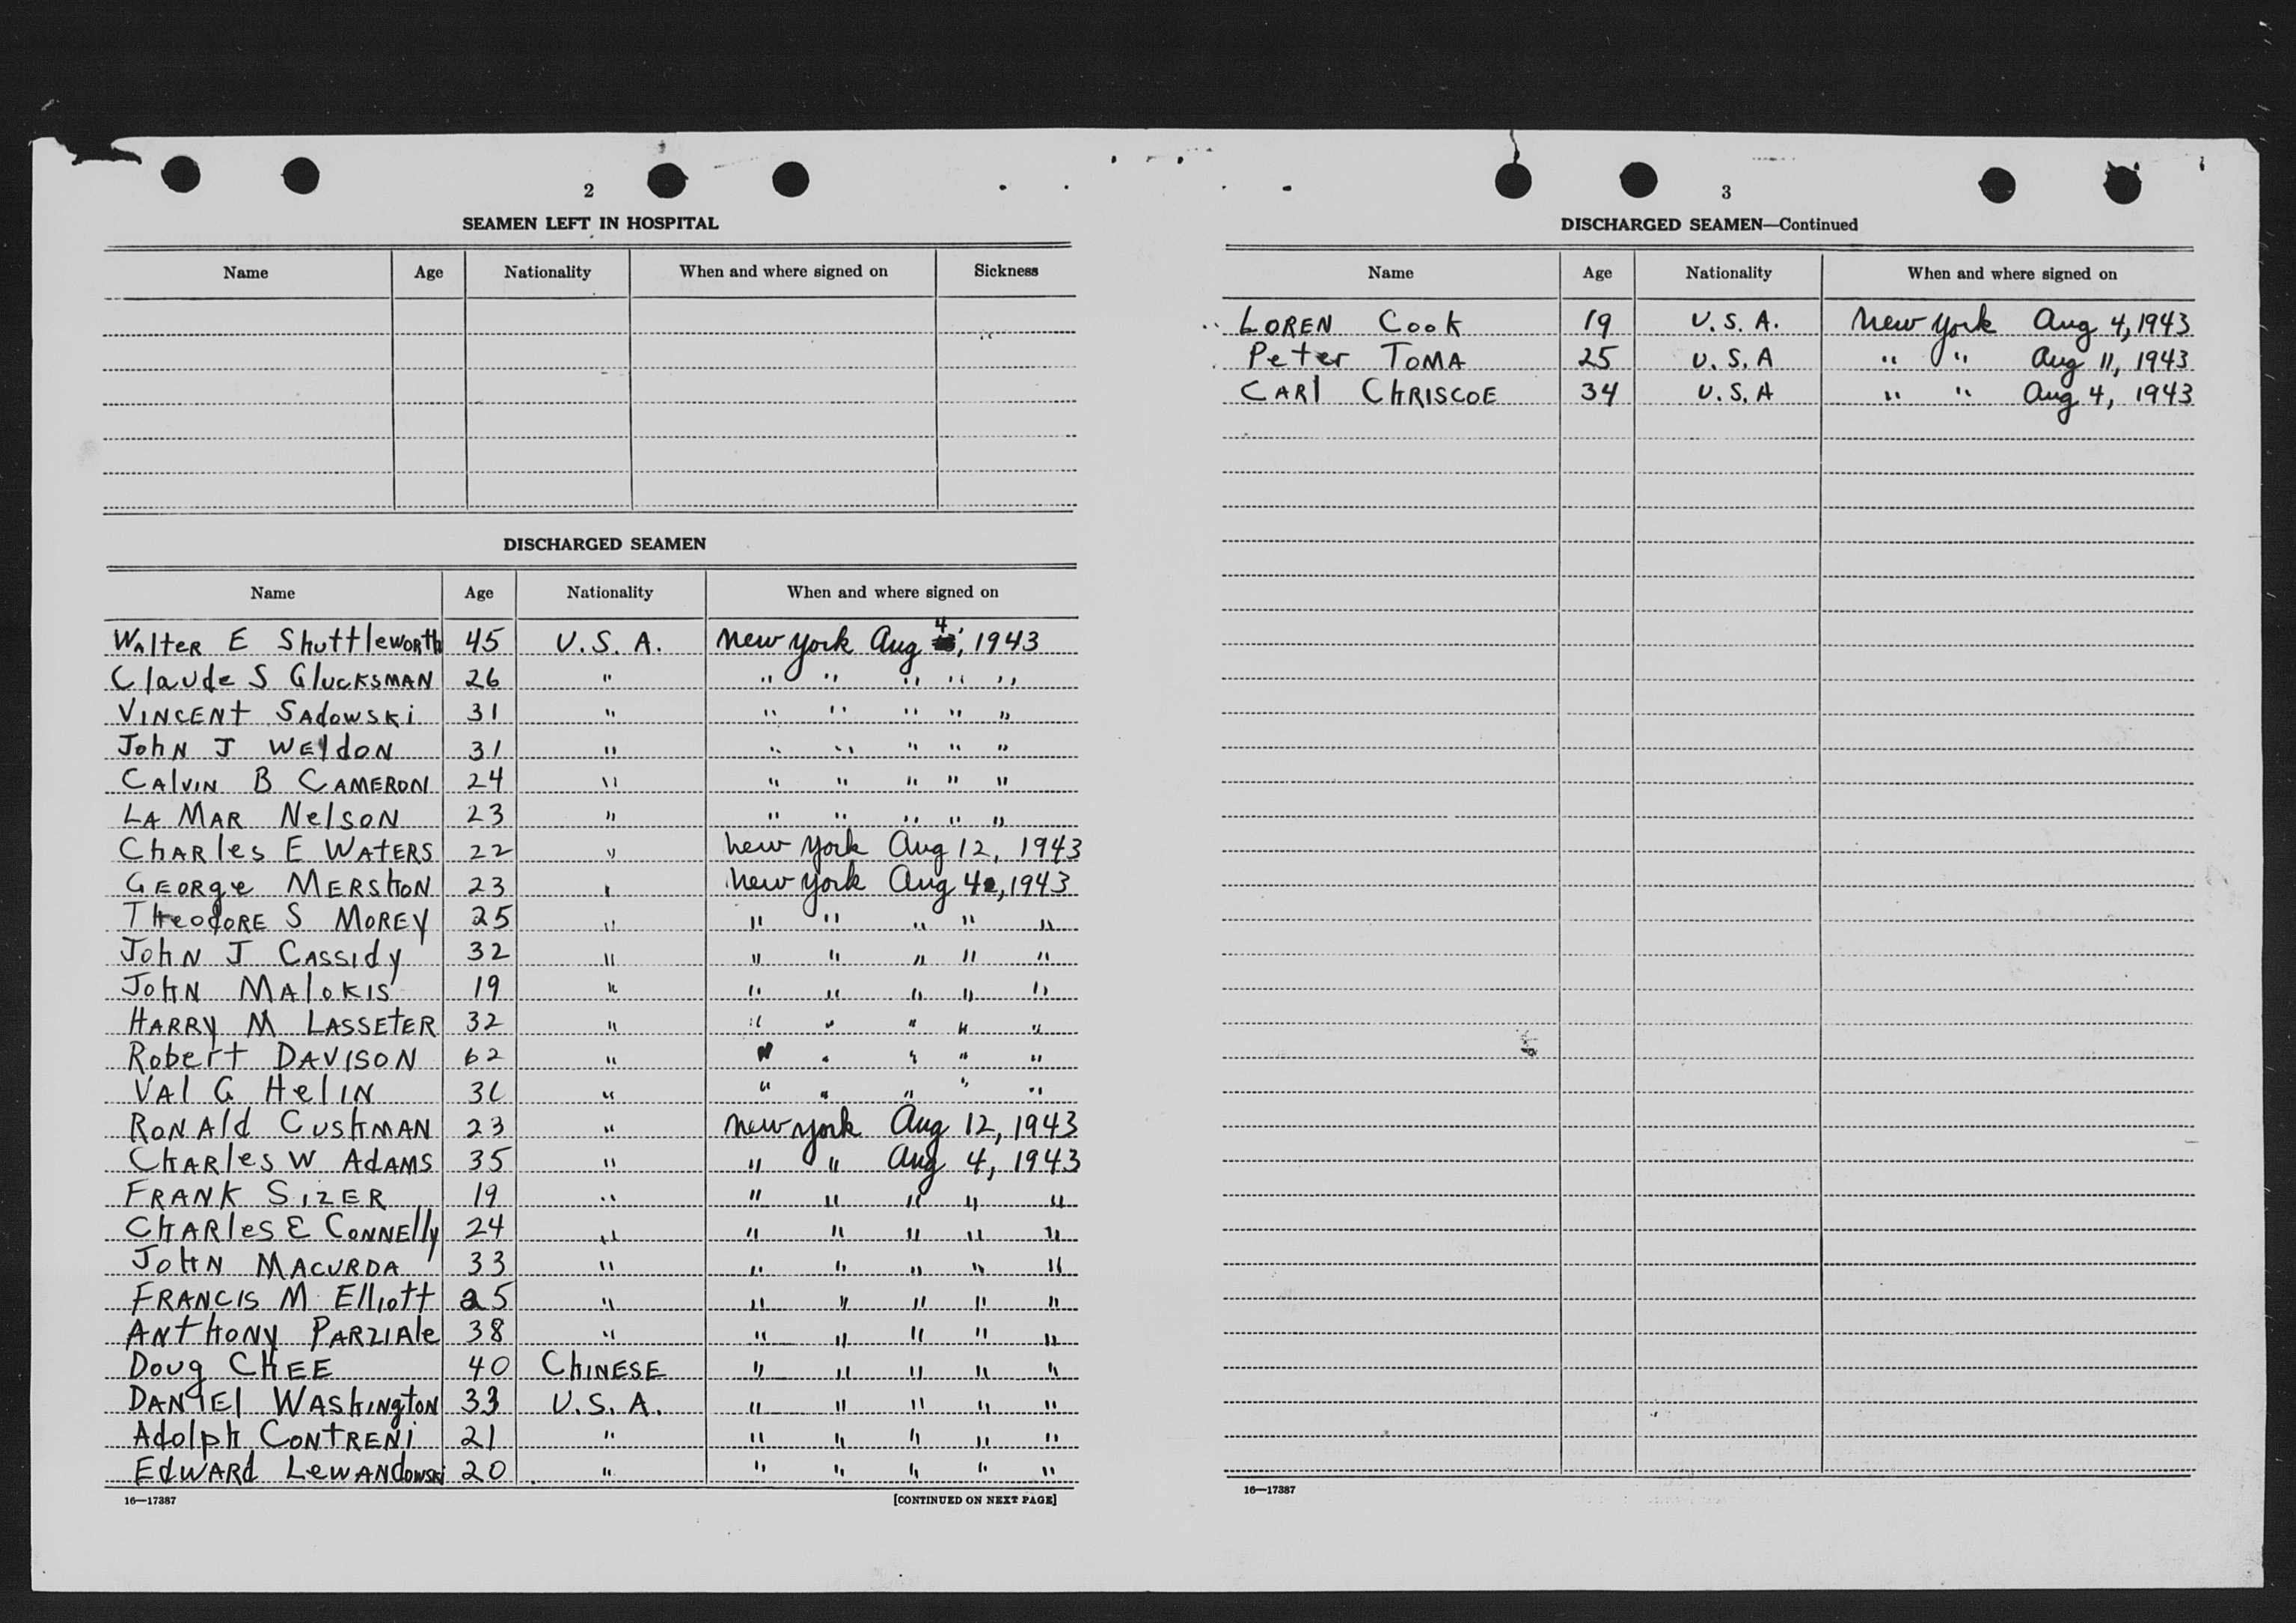 2
SEAMEN LEFT IN HOSPITAL
Name Age Nationality When and where signed on Sickness
DISCHARGED SEAMEN
Name Age Nationality When and where signed on
Walter E Shuttleworth 45 U. S. A. New York Aug 4, 1943
Claude S Glucksman 26 " " " " " "
Vincent Sadowski 31 " " " " " "
John J Weldon 31 " " " " " "
Calvin B Cameron 24 " " " " " "
La Mar Nelson 23 " " " " " "
Charles E Waters 22 " New York Aug 12, 1943
George Mershon 23 " New York Aug 4, 1943
Theodore S Morey 25 " " " " " "
John J Cassidy 32 " " " " " "
John Malokis 19 " " " " " "
Harry M Lasseter 32 " " " " " "
Robert Davison 62 " " " " " "
Val G Helin " " " " " "
Ronald Cushman 23 " New York Aug 12, 1943
Charles W Adams 35 " " " Aug 4, 1943
Frank Sizer 19 " " " " " "
Charles E Connelly 24 " " " " " "
John Macurda 33 " " " " " "
Francis M Elliott 25 " " " " " "
Anthony Parziale 38 " " " " " "
Doug Chee 40 Chinese " " " " "
Daniel Washington 33 U. S. A. " " " " "
Adolph Contreni 21 " " " " " "
Edward Lewandowski 20 " " " " " "
16—17387 [CONTINUED ON NEXT PAGE]
3
DISCHARGED SEAMEN—Continued
Name Age Nationality When and where signed on
Loren Cook 19 U. S. A. New York Aug 4, 1943
Peter Toma 25 U. S. A " " Aug 11, 1943
Carl Chriscoe 34 U. S. A " " Aug 4, 1943
16—17387